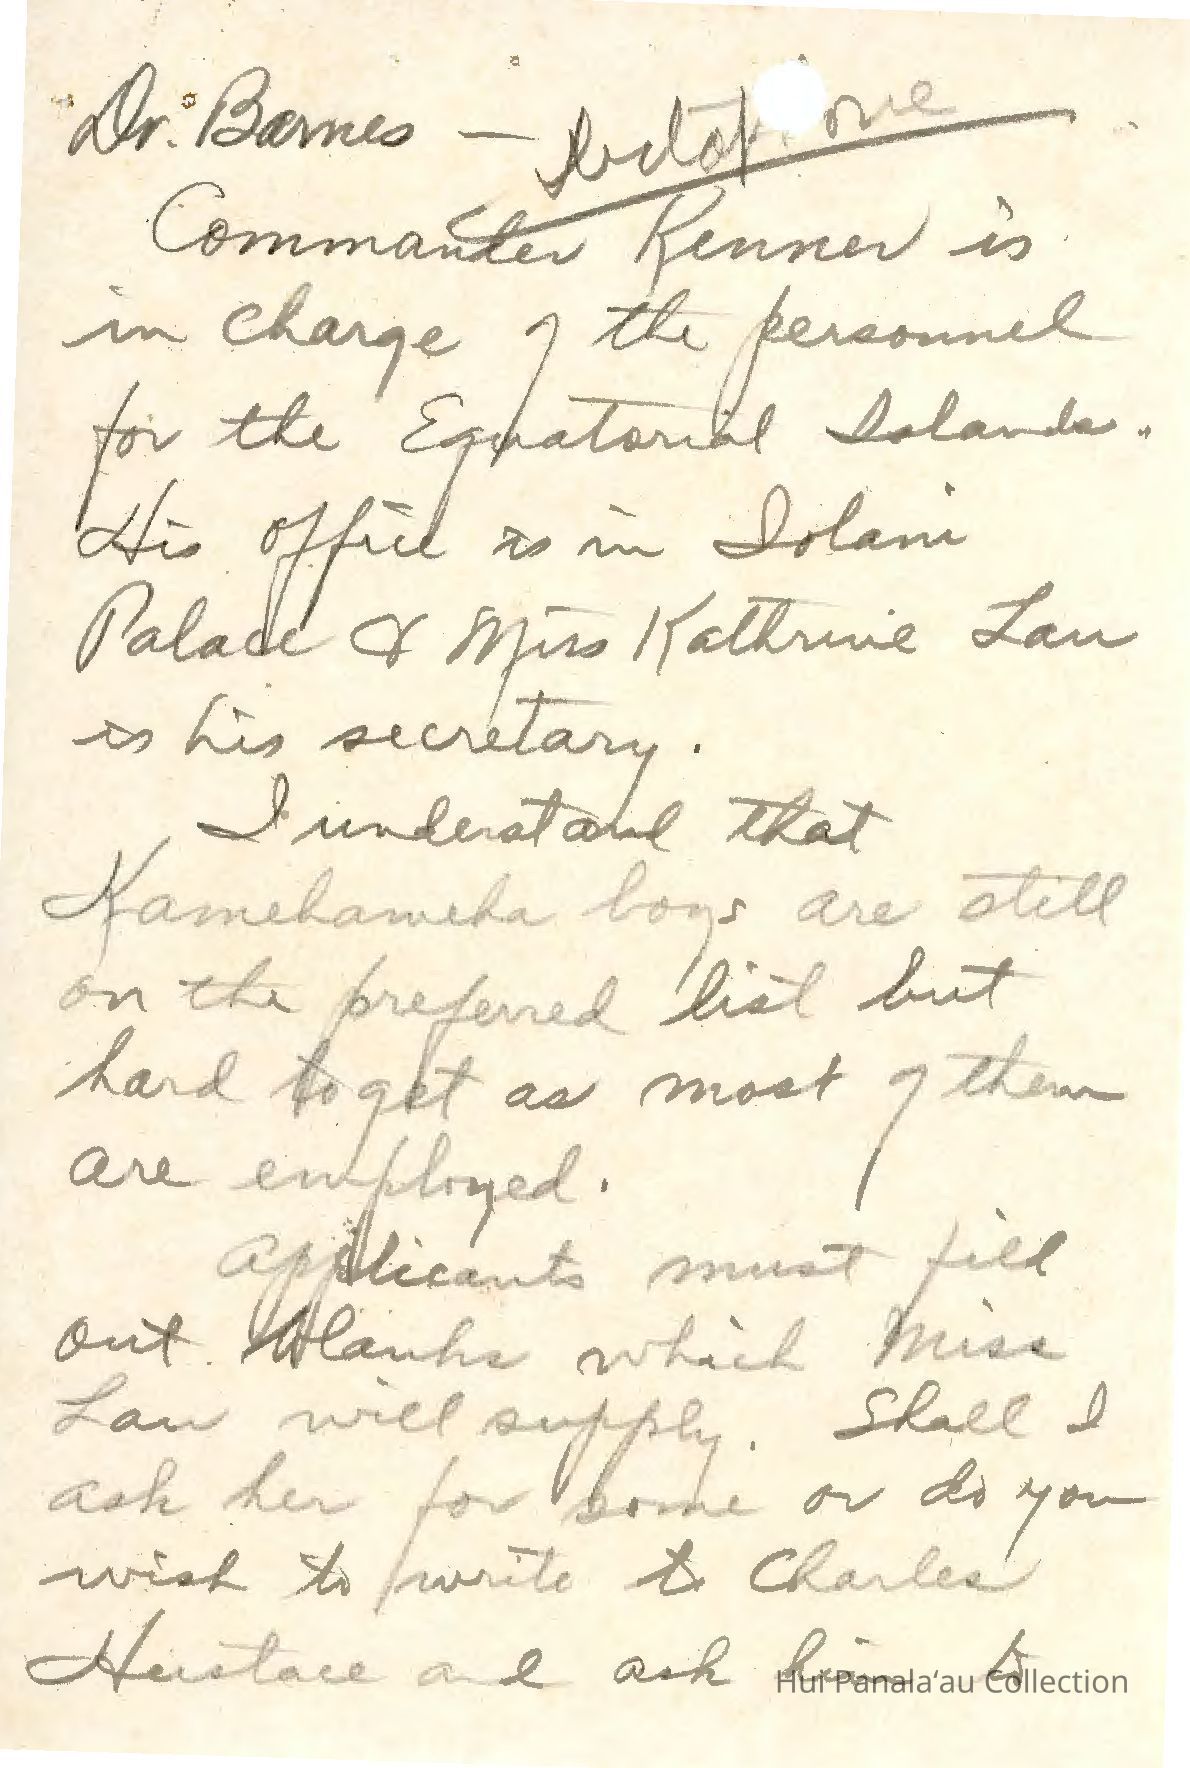 Dr. Barnes —
Commander Kenner is
in charge of the personnel
for the Equatorial Islands.
His office is in Iolani
Palace & Miss Kathrine Lau
is his secretary.
I understand that
Kamehameha boys are still
on the preferred list but
hard to get as most of them
are employed.
Applicants must fill
out blanks which Miss
Lau will supply. Shall I
ask her for some or do you
wish to write to Charles
Hustace and ask him to
Hui Panalaʻau Collection